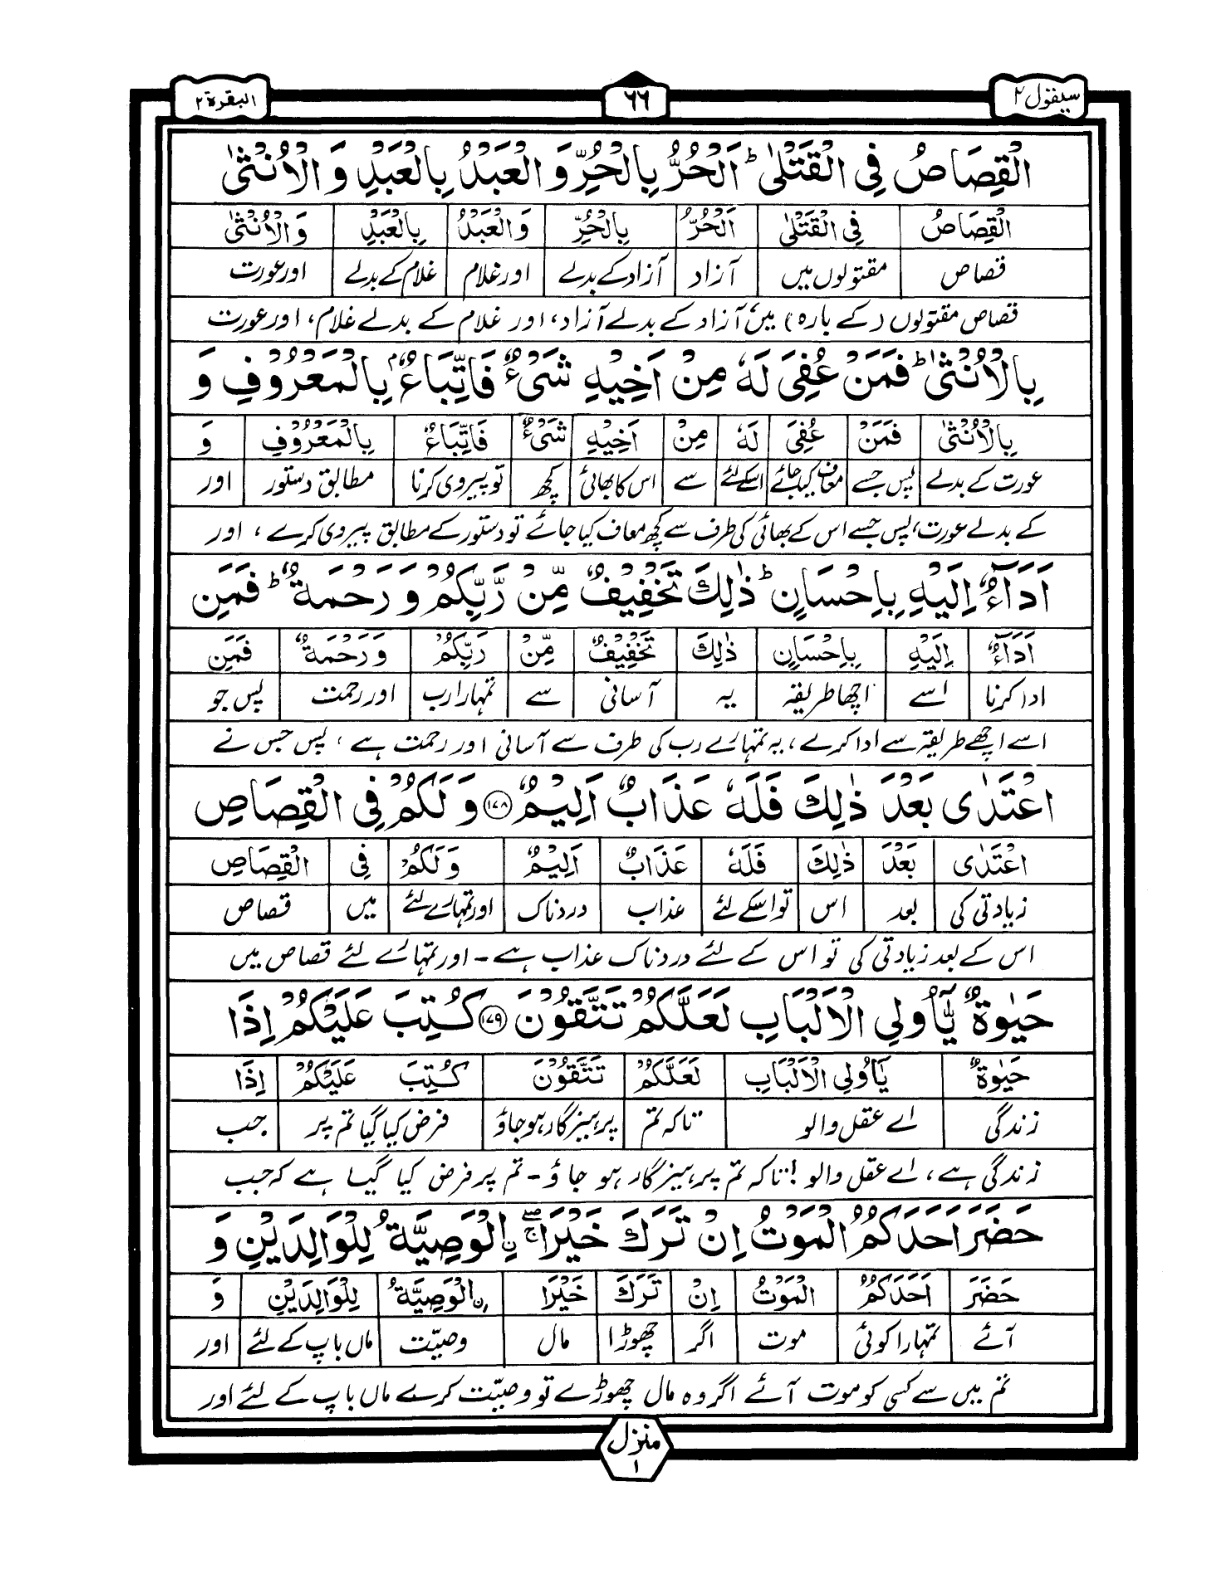 سیقول ۲ ۶۶ البقرة ۲
الْقِصَاصُ فِی الْقَتْلٰیؕ اَلْحُرُّ بِالْحُرِّ وَ الْعَبْدُ بِالْعَبْدِ وَ الْاُنْثٰی
الْقِصَاصُ فِی الْقَتْلٰی اَلْحُرُّ بِالْحُرِّ وَالْعَبْدُ بِالْعَبْدِ وَالْاُنْثٰی
قصاص مقتولوں میں آزاد آزاد کے بدلے اور غلام غلام کے بدلے اور عورت
قصاص مقتولوں (کے بارہ) میں آزاد کے بدلے آزاد، اور غلام کے بدلے غلام، اور عورت
بِالْاُنْثٰیؕ فَمَنْ عُفِیَ لَهٗ مِنْ اَخِیْهِ شَیْءٌ فَاتِّبَاعٌۢ بِالْمَعْرُوْفِ وَ
بِالْاُنْثٰی فَمَنْ عُفِیَ لَهٗ مِنْ اَخِیْهِ شَیْءٌ فَاتِّبَاعٌ بِالْمَعْرُوْفِ وَ
عورت کے بدلے پس جسے معاف کیا جائے اسکے لئے سے اس کا بھائی کچھ تو پیروی کرنا مطابق دستور اور
کے بدلے عورت، پس جسے اس کے بھائی کی طرف سے کچھ معاف کیا جائے تو دستور کے مطابق پیروی کرے، اور
اَدَآءٌ اِلَیْهِ بِاِحْسَانٍؕ ذٰلِكَ تَخْفِیْفٌ مِّنْ رَّبِّكُمْ وَ رَحْمَةٌؕ فَمَنِ
اَدَآءٌ اِلَیْهِ بِاِحْسَانٍ ذٰلِكَ تَخْفِیْفٌ مِّنْ رَبِّكُمْ وَرَحْمَةٌ فَمَنِ
ادا کرنا اسے اچھا طریقہ یہ آسانی سے تمہارا رب اور رحمت پس جو
اسے اچھے طریقہ سے ادا کرے، یہ تمہارے رب کی طرف سے آسانی اور رحمت ہے، پس جس نے
اعْتَدٰی بَعْدَ ذٰلِكَ فَلَهٗ عَذَابٌ اَلِیْمٌ ﴿۱۷۸﴾ وَ لَكُمْ فِی الْقِصَاصِ
اعْتَدٰی بَعْدَ ذٰلِكَ فَلَهٗ عَذَابٌ اَلِیْمٌ وَلَكُمْ فِی الْقِصَاصِ
زیادتی کی بعد اس تو اسکے لئے عذاب دردناک اور تمہارے لئے میں قصاص
اس کے بعد زیادتی کی تو اس کے لئے دردناک عذاب ہے۔ اور تمہارے لئے قصاص میں
حَیٰوةٌ یّٰۤاُولِی الْاَلْبَابِ لَعَلَّكُمْ تَتَّقُوْنَ ﴿۱۷۹﴾ كُتِبَ عَلَیْكُمْ اِذَا
حَیٰوةٌ یٰاُولِی الْاَلْبَابِ لَعَلَّكُمْ تَتَّقُوْنَ كُتِبَ عَلَیْكُمْ اِذَا
زندگی اے عقل والو تاکہ تم پرہیزگار ہو جاؤ فرض کیا گیا تم پر جب
زندگی ہے، اے عقل والو! تاکہ تم پرہیزگار ہو جاؤ۔ تم پر فرض کیا گیا ہے کہ جب
حَضَرَ اَحَدَكُمُ الْمَوْتُ اِنْ تَرَكَ خَیْرَا ۖۚ اِ۟لْوَصِیَّةُ لِلْوَالِدَیْنِ وَ
حَضَرَ اَحَدَكُمُ الْمَوْتُ اِنْ تَرَكَ خَیْرَا اِ۟لْوَصِیَّةُ لِلْوَالِدَیْنِ وَ
آئے تمہارا کوئی موت اگر چھوڑا مال وصیّت ماں باپ کے لئے اور
تم میں سے کسی کو موت آئے اگر وہ مال چھوڑے تو وصیّت کرے ماں باپ کے لئے اور
منزل ۱